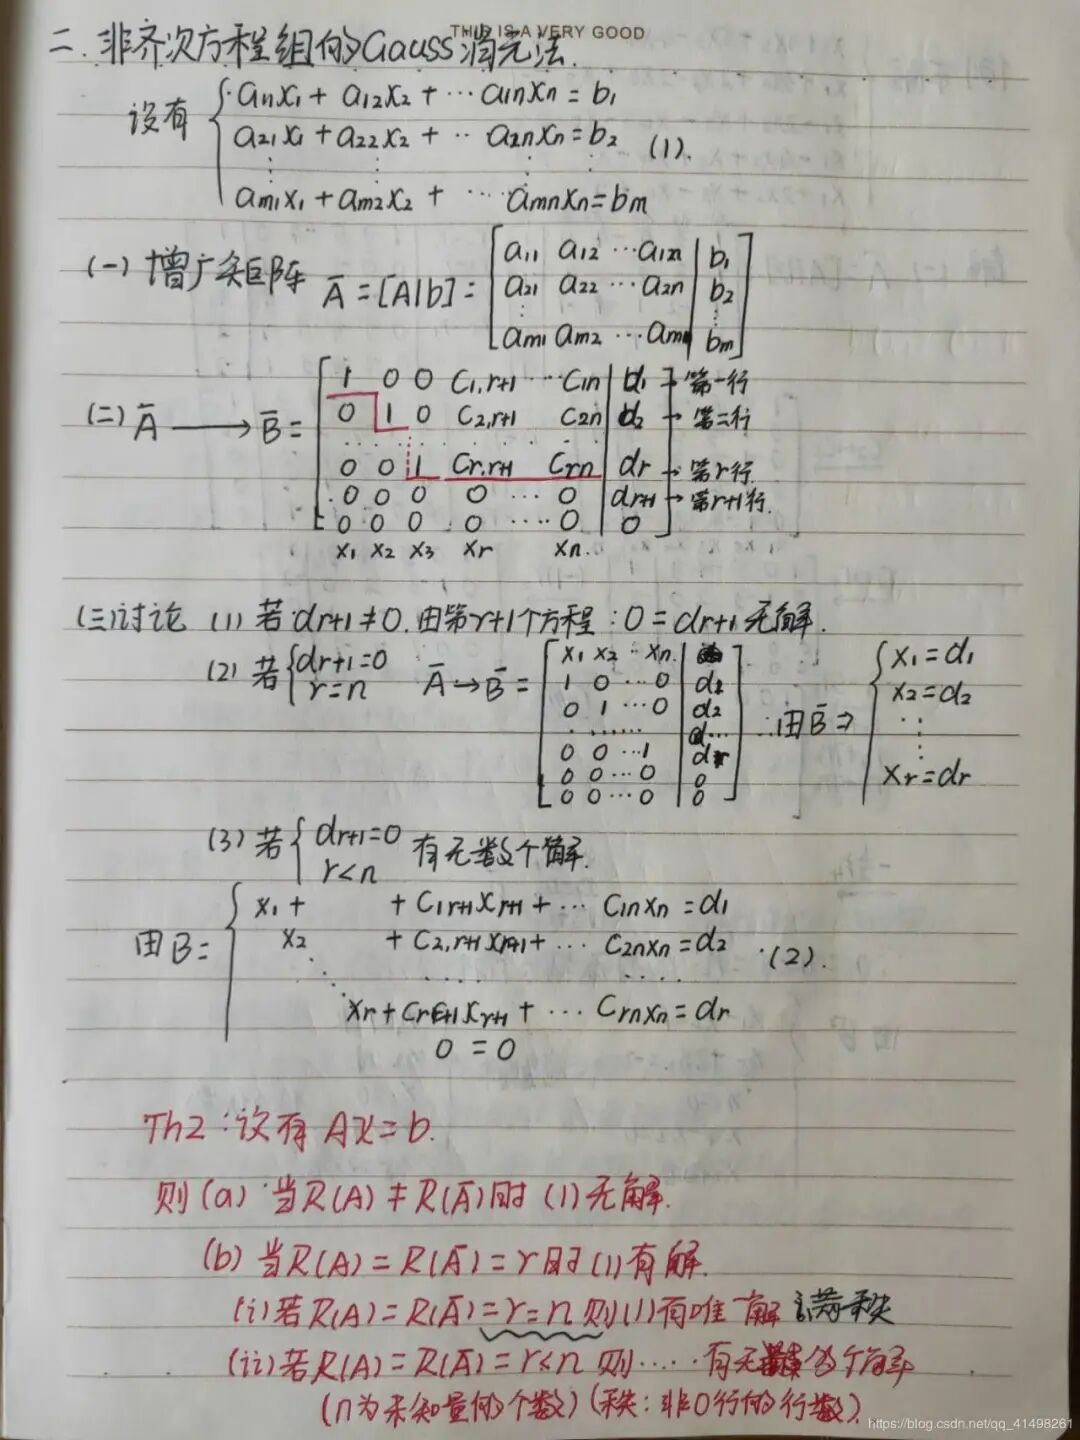 THIS IS A VERY GOOD
二.非齐次方程组的Gauss消元法.
设有 { a11x1 + a12x2 + ··· a1nxn = b1
a21x1 + a22x2 + ·· a2nxn = b2 (1).
⋮ ⋮ ⋮ ⋮
am1x1 + am2x2 + ··· amnxn = bm
(一) 增广矩阵 Ā = [A|b] = [ a11 a12 ··· a1n | b1
a21 a22 ··· a2n | b2
⋮ ⋮
am1 am2 ··· am | bm ]
(二) Ā → B̄ = [ 1 0 0 C1,r+1 ··· C1n | d1 ] → 第一行
0 1 0 C2,r+1 C2n | d2 → 第二行
··········
0 0 1 Cr,r+1 Crn | dr → 第r行
0 0 0 0 ··· 0 | dr+1 → 第r+1行.
0 0 0 0 ···· 0 | 0
x1 x2 x3 xr xn.
(三)讨论 (1) 若dr+1≠0.由第r+1个方程:0=dr+1无解.
(2) 若{ dr+1=0 r=n Ā→B̄ = [ x1 x2 ·· xn.
1 0 ··· 0 | d1
0 1 ··· 0 | d2
······ | d···
0 0 ··· 1 | dr
0 0 ··· 0 | 0
0 0 ··· 0 | 0 ] ∴由B̄⇒ { x1=d1
x2=d2
⋮
xr=dr
(3) 若{ dr+1=0 r<n 有无数个解.
由B= { x1 + + C1r+1xr+1 + ··· C1nxn = d1
x2 + C2,r+1xr+1 + ··· C2nxn = d2 (2).
··· ···· ····
xr + Crr+1xr+1 + ··· Crnxn = dr
0 = 0
Th2:设有Ax=b.
则(a) 当R(A)≠R(Ā)时(1)无解.
(b) 当R(A)=R(Ā)=r时(1)有解.
(i) 若R(A)=R(Ā)=r=n则(1)有唯一解 满秩
(ii) 若R(A)=R(Ā)=r<n 则····· 有无 多个解
(n为未知量的个数)(秩:非0行的行数).
https://blog.csdn.net/qq_41498261